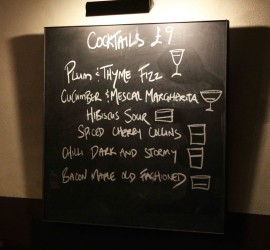 COCKTAILS £9
PLUM & THYME FIZZ
CUCUMBER & MESCAL MARGHERITA
HIBISCUS SOUR
SPICED CHERRY COLLINS
CHILLI DARK AND STORMY
BACON MAPLE OLD FASHIONED